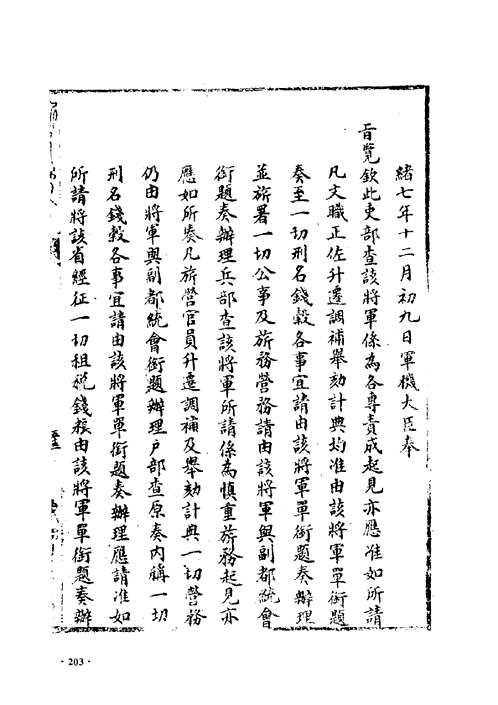 緒七年十二月初九日軍機大臣奉
旨覽欽此吏部查該將軍係為各專責成起見亦應准如所請
凡文職正佐升遷調補舉劾計典均准由該將軍單銜題
奏至一切刑名錢穀各事宜請由該將軍單銜題奏辦理
並旅署一切公事及旅務營務請由該將軍與副都統會
銜題奏辦理兵部查該將軍所請係為慎重旅務起見亦
應如所奏凡旅營官員升遷調補及舉劾計典一切營務
仍由將軍與副都統會銜題辦理戶部查原奏內稱一切
刑名錢穀各事宜請由該將軍單銜題奏辦理應請准如
所請將該省經征一切租稅錢糧由該將軍單銜題奏辦
· 203 ·